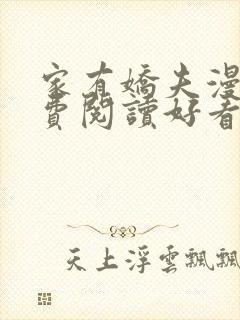 家有嬌夫漫
費閱讀好看
天上浮雲飄飄